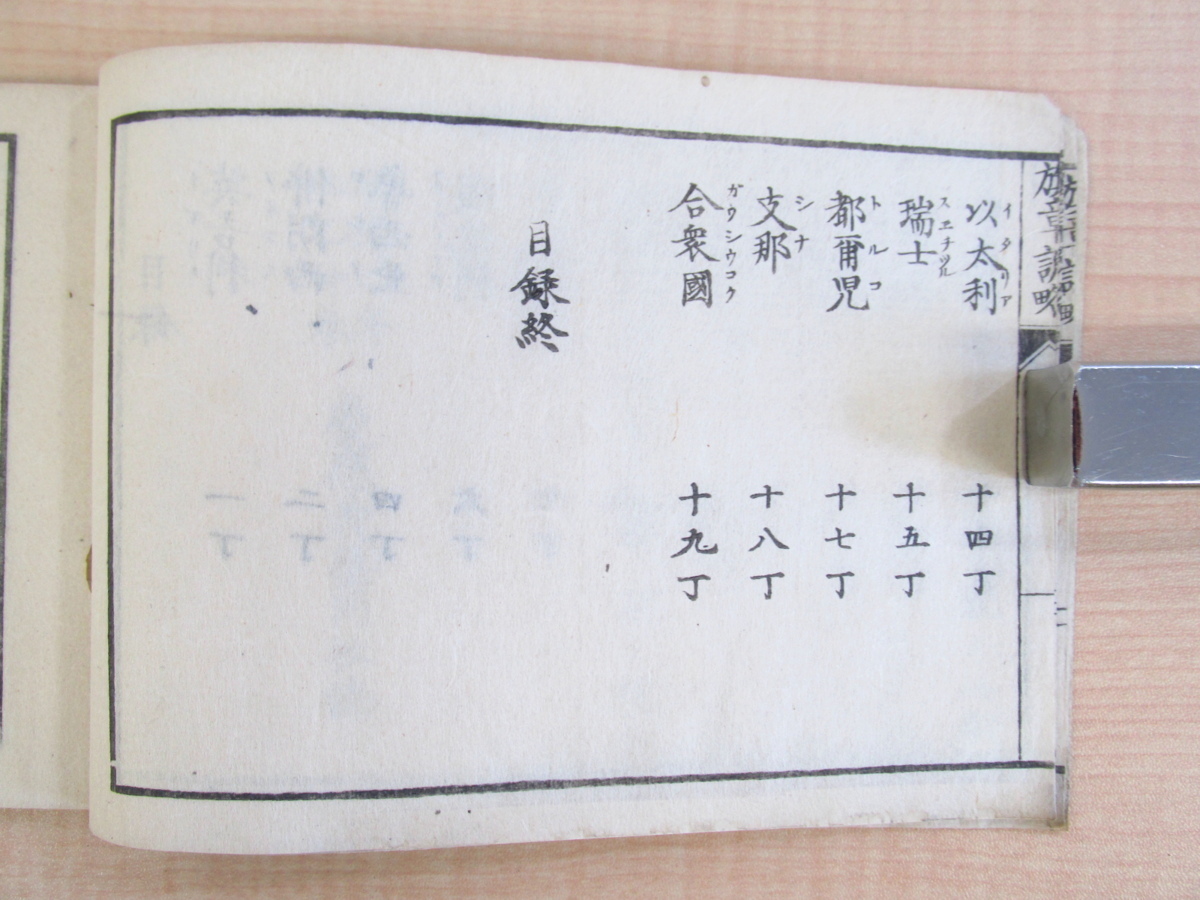 以太利 イタリア 十四丁
瑞士 スエチツル 十五丁
都爾児 トルコ 十七丁
支那 シナ 十八丁
合衆國 ガウシウコク 十九丁
目録終